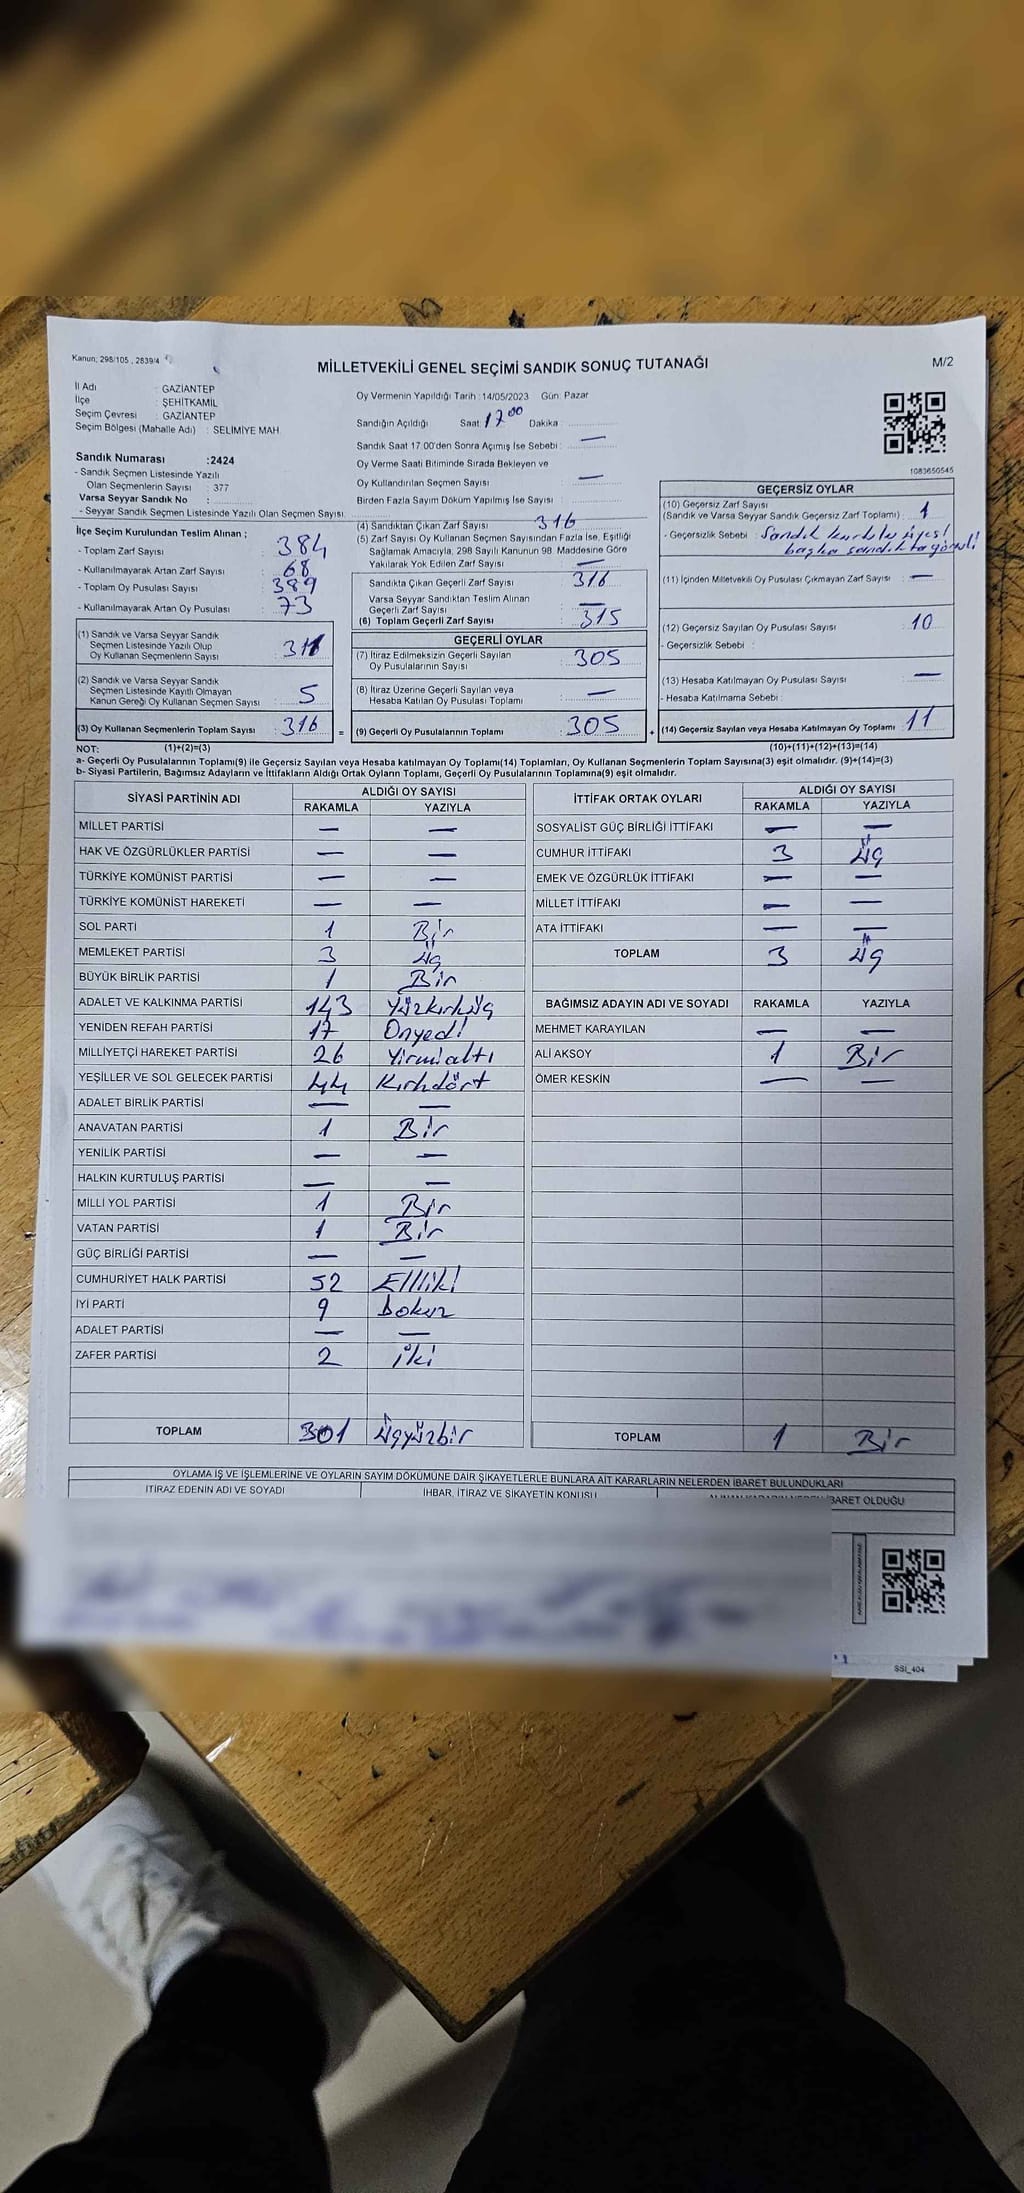 Kanun; 298/105 , 2839/4
MİLLETVEKİLİ GENEL SEÇİMİ SANDIK SONUÇ TUTANAĞI
M/2
İl Adı : GAZİANTEP
İlçe : ŞEHİTKAMİL
Seçim Çevresi : GAZİANTEP
Seçim Bölgesi (Mahalle Adı) : SELİMİYE MAH.
Sandık Numarası :2424
- Sandık Seçmen Listesinde Yazılı
Olan Seçmenlerin Sayısı : 377
Varsa Seyyar Sandık No :
- Seyyar Sandık Seçmen Listesinde Yazılı Olan Seçmen Sayısı:
Oy Vermenin Yapıldığı Tarih :14/05/2023 Gün: Pazar
Sandığın Açıldığı Saat: 17 00 Dakika :
Sandık Saat 17.00'den Sonra Açımış İse Sebebi : —
Oy Verme Saati Bitiminde Sırada Bekleyen ve
Oy Kullandırılan Seçmen Sayısı : —
Birden Fazla Sayım Döküm Yapılmış İse Sayısı :
1083650545
İlçe Seçim Kurulundan Teslim Alınan ;
- Toplam Zarf Sayısı : 384
- Kullanılmayarak Artan Zarf Sayısı : 68
- Toplam Oy Pusulası Sayısı : 389
- Kullanılmayarak Artan Oy Pusulası : 73
(1) Sandık ve Varsa Seyyar Sandık
Seçmen Listesinde Yazılı Olup
Oy Kullanan Seçmenlerin Sayısı : 311
(2) Sandık ve Varsa Seyyar Sandık
Seçmen Listesinde Kayıtlı Olmayan
Kanun Gereği Oy Kullanan Seçmen Sayısı : 5
(3) Oy Kullanan Seçmenlerin Toplam Sayısı : 316 =
(4) Sandıktan Çıkan Zarf Sayısı : 316
(5) Zarf Sayısı Oy Kullanan Seçmen Sayısından Fazla İse, Eşitliği
Sağlamak Amacıyla, 298 Sayılı Kanunun 98. Maddesine Göre
Yakılarak Yok Edilen Zarf Sayısı : —
Sandıkta Çıkan Geçerli Zarf Sayısı : 316
Varsa Seyyar Sandıktan Teslim Alınan
Geçerli Zarf Sayısı : —
(6) Toplam Geçerli Zarf Sayısı : 315
GEÇERLİ OYLAR
(7) İtiraz Edilmeksizin Geçerli Sayılan
Oy Pusulalarının Sayısı : 305
(8) İtiraz Üzerine Geçerli Sayılan veya
Hesaba Katılan Oy Pusulası Toplamı : —
(9) Geçerli Oy Pusulalarının Toplamı : 305 +
GEÇERSİZ OYLAR
(10) Geçersiz Zarf Sayısı
(Sandık ve Varsa Seyyar Sandık Geçersiz Zarf Toplamı) : 1
- Geçersizlik Sebebi : Sandık kurulu üyesi
başka sandıkta görevli
(11) İçinden Milletvekili Oy Pusulası Çıkmayan Zarf Sayısı : —
(12) Geçersiz Sayılan Oy Pusulası Sayısı : 10
- Geçersizlik Sebebi :
(13) Hesaba Katılmayan Oy Pusulası Sayısı : —
- Hesaba Katılmama Sebebi :
(14) Geçersiz Sayılan veya Hesaba Katılmayan Oy Toplamı : 11
NOT: (1)+(2)=(3) (10)+(11)+(12)+(13)=(14)
a- Geçerli Oy Pusulalarının Toplamı(9) ile Geçersiz Sayılan veya Hesaba katılmayan Oy Toplamı(14) Toplamları, Oy Kullanan Seçmenlerin Toplam Sayısına(3) eşit olmalıdır. (9)+(14)=(3)
b- Siyasi Partilerin, Bağımsız Adayların ve İttifakların Aldığı Ortak Oyların Toplamı, Geçerli Oy Pusulalarının Toplamına(9) eşit olmalıdır.
SİYASİ PARTİNİN ADI ALDIĞI OY SAYISI
RAKAMLA YAZIYLA
MİLLET PARTİSİ — —
HAK VE ÖZGÜRLÜKLER PARTİSİ — —
TÜRKİYE KOMÜNİST PARTİSİ — —
TÜRKİYE KOMÜNİST HAREKETİ — —
SOL PARTİ 1 Bir
MEMLEKET PARTİSİ 3 Üç
BÜYÜK BİRLİK PARTİSİ 1 Bir
ADALET VE KALKINMA PARTİSİ 143 Yüzkırküç
YENİDEN REFAH PARTİSİ 17 Onyedi
MİLLİYETÇİ HAREKET PARTİSİ 26 Yirmialtı
YEŞİLLER VE SOL GELECEK PARTİSİ 44 Kırkdört
ADALET BİRLİK PARTİSİ — —
ANAVATAN PARTİSİ 1 Bir
YENİLİK PARTİSİ — —
HALKIN KURTULUŞ PARTİSİ — —
MİLLİ YOL PARTİSİ 1 Bir
VATAN PARTİSİ 1 Bir
GÜÇ BİRLİĞİ PARTİSİ — —
CUMHURİYET HALK PARTİSİ 52 Elliiki
İYİ PARTİ 9 Dokuz
ADALET PARTİSİ — —
ZAFER PARTİSİ 2 İki
TOPLAM 301 Üçyüzbir
İTTİFAK ORTAK OYLARI ALDIĞI OY SAYISI
RAKAMLA YAZIYLA
SOSYALİST GÜÇ BİRLİĞİ İTTİFAKI — —
CUMHUR İTTİFAKI 3 Üç
EMEK VE ÖZGÜRLÜK İTTİFAKI — —
MİLLET İTTİFAKI — —
ATA İTTİFAKI — —
TOPLAM 3 Üç
BAĞIMSIZ ADAYIN ADI VE SOYADI RAKAMLA YAZIYLA
MEHMET KARAYILAN — —
ALİ AKSOY 1 Bir
ÖMER KESKİN — —
TOPLAM 1 Bir
OYLAMA İŞ VE İŞLEMLERİNE VE OYLARIN SAYIM DÖKÜMÜNE DAİR ŞİKAYETLERLE BUNLARA AİT KARARLARIN NELERDEN İBARET BULUNDUKLARI
İTİRAZ EDENİN ADI VE SOYADI İHBAR, İTİRAZ VE ŞİKAYETİN KONUSU ALINAN KARARIN NEDEN İBARET OLDUĞU
SSI_404